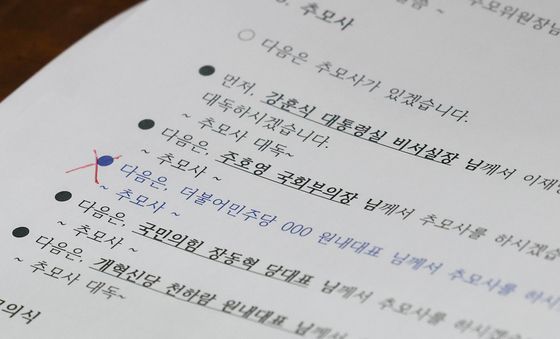 추모위원장님
추모사
○ 다음은 추모사가 있겠습니다.
● 먼저, 강훈식 대통령실 비서실장 님께서 이재
대독하시겠습니다.
~ 추모사 대독~
● 다음은, 주호영 국회부의장 님께서 추모사를 하시겠습
~ 추모사 ~
● 다음은, 더불어민주당 000 원내대표 님께서 추모사를 하시
~ 추모사 ~
● 다음은, 국민의힘 장동혁 당대표 님께서 추모사를 하시겠습
~ 추모사 ~
● 다음은, 개혁신당 천하람 원내대표 님께서
~ 추모사 대독~
모의식